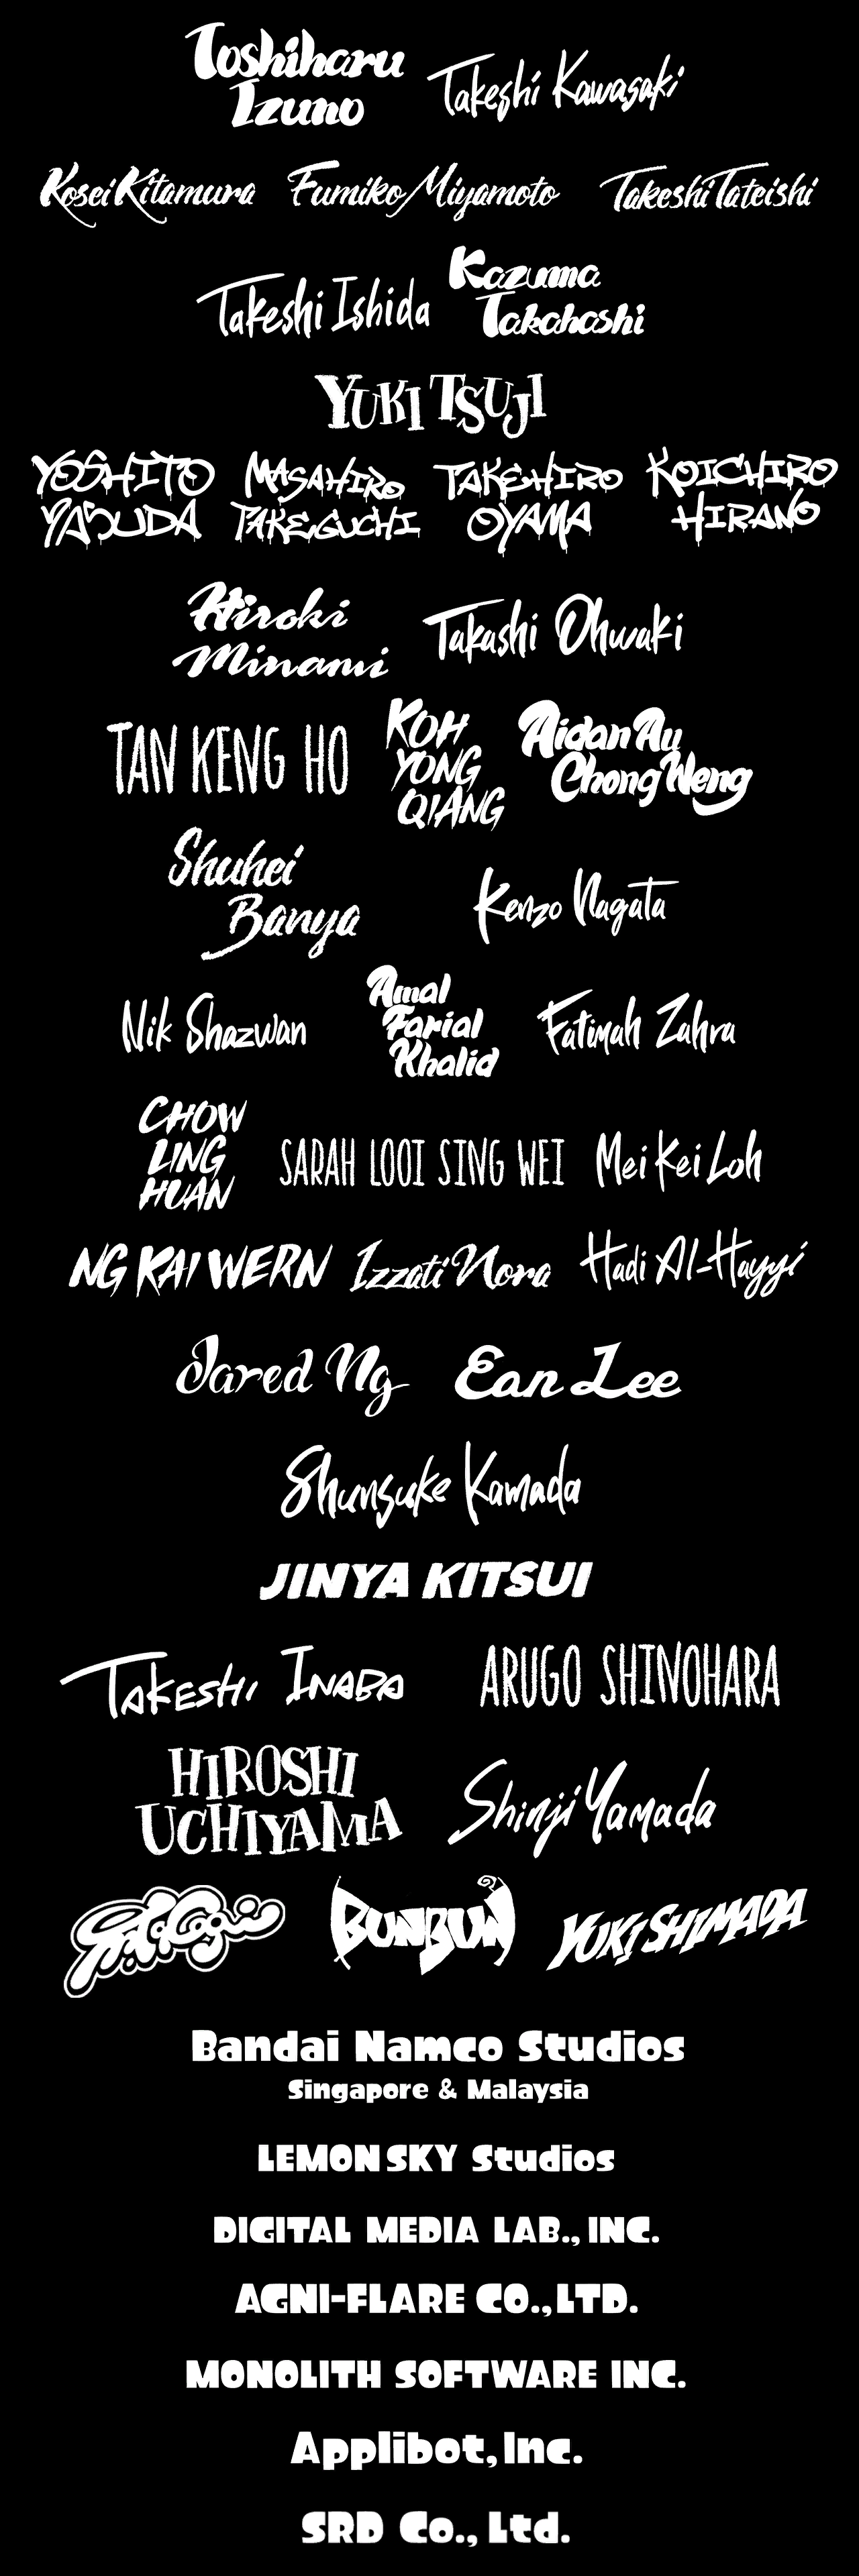 Toshiharu Izuno Takeshi Kawasaki
Kosei Kitamura Fumiko Miyamoto Takeshi Tateishi
Takeshi Ishida Kazuma Takahashi
YUKI TSUJI
YOSHITO YASUDA MASAHIRO TAKEGUCHI TAKEHIRO OYAMA KOICHIRO HIRANO
Hiroki Minami Takashi Ohwaki
TAN KENG HO KOH YONG QIANG Aidan Au Chong Weng
Shuhei Banya Kenzo Nagata
Nik Shazwan Amal Farial Khalid Fatimah Zahra
CHOW LING HUAN SARAH LOOI SING WEI Mei Kei Loh
NG KAI WERN Izzati Nora Hadi Al-Hayyi
Jared Ng Ean Lee
Shunsuke Kamada
JINYA KITSUI
TAKESHI INABA ARUGO SHINOHARA
HIROSHI UCHIYAMA Shinji Yamada
BUNBUN YUKI SHIMADA
Bandai Namco Studios
Singapore & Malaysia
LEMON SKY Studios
DIGITAL MEDIA LAB., INC.
AGNI-FLARE CO., LTD.
MONOLITH SOFTWARE INC.
Applibot, Inc.
SRD Co., Ltd.